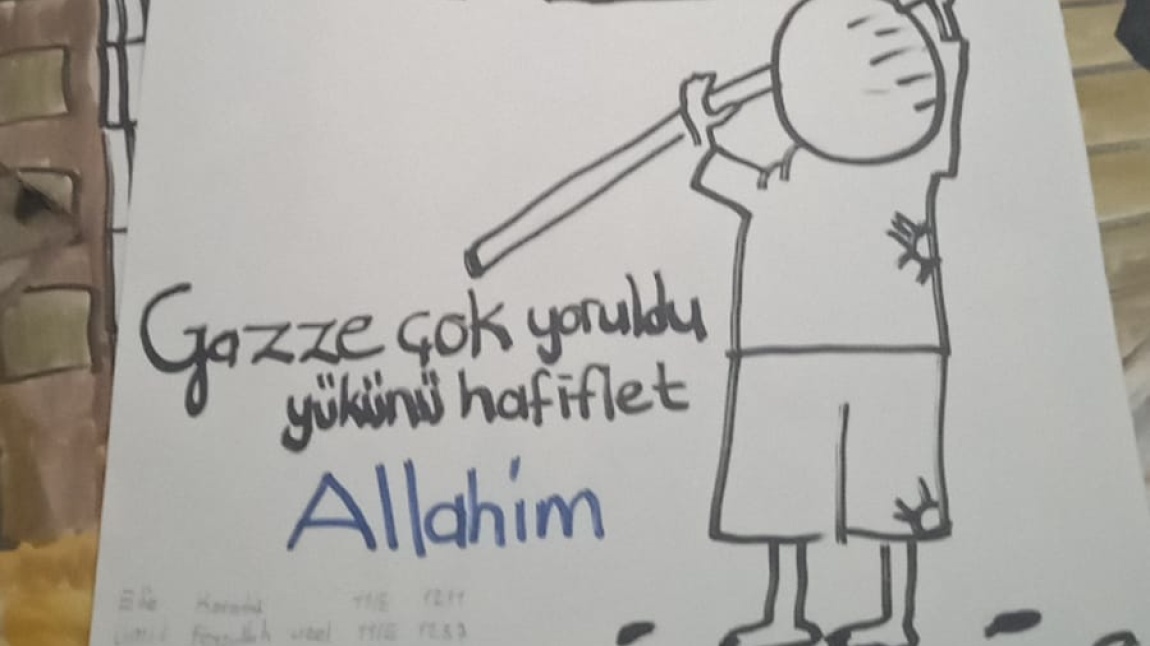 Gazze çok yoruldu
yükünü hafiflet
Allahim
11/E